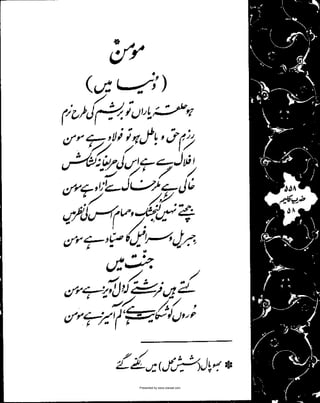 مومن*
(دنیا میں)
ہو حلقۂ یاراں تو بریشم کی طرح نرم
رزمِ حق و باطل ہو تو فولاد ہے مومن
افلاک سے ہے اس کی حریفانہ کشاکش
خاکی ہے مگر خاک سے آزاد ہے مومن
جچتے نہیں کنجشک و حمام اس کی نظر میں
جبریل و سرافیل کا صیاد ہے مومن
جنت میں
کہتے ہیں فرشتے کہ دل آویز ہے مومن
حوروں کو شکایت ہے، کم آمیز ہے مومن
* بھوپال (شیش محل) میں لکھے گئے
۵۵۸
ضربِ کلیم
۵۸